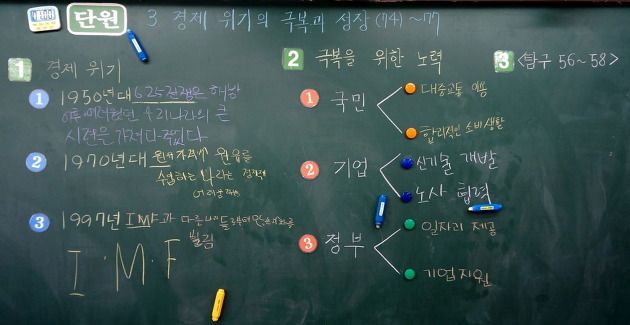 단원 3 경제 위기의 극복과 성장 (74)~77
1 경제 위기
1 1950년대 6.25전쟁은 해방
이후 어려웠던 우리나라의 큰
시련을 가져다 주었다
2 1970년대 원유가격↑ 원유를
수입하는 나라는 경제적
3 1997년 IMF과 다른 나라들로부터
빌림
I.M.F
2 극복을 위한 노력
1 국민
대중교통 이용
합리적인 소비 생활
2 기업
신기술 개발
노사 협력
3 정부
일자리 제공
기업지원
3 <탐구 56~58>